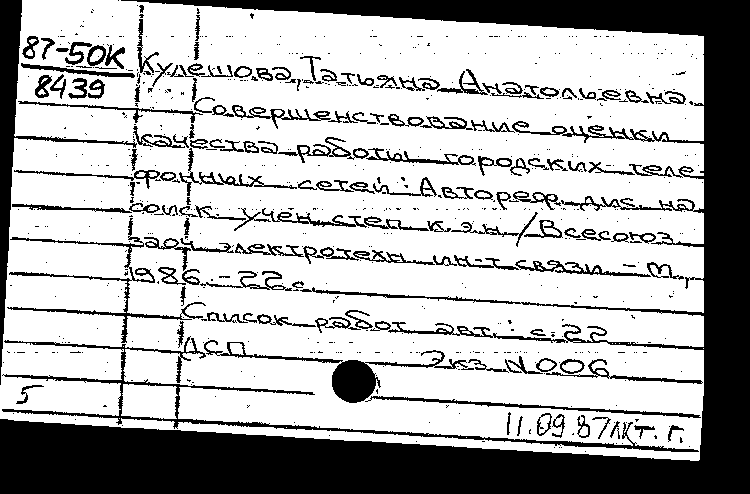 87-50К
8439
Кулешова, Татьяна Анатольевна.
Совершенствование оценки
качества работы городских теле-
фонных сетей : Автореф. дис. на
соиск. учен. степ. к.э.н. / Всесоюз.
заоч. электротехн. ин-т связи. - М.,
1986. - 22 с.
Список работ авт.: с. 22
ДСП Экз. N 006
5
11.09.87 г.